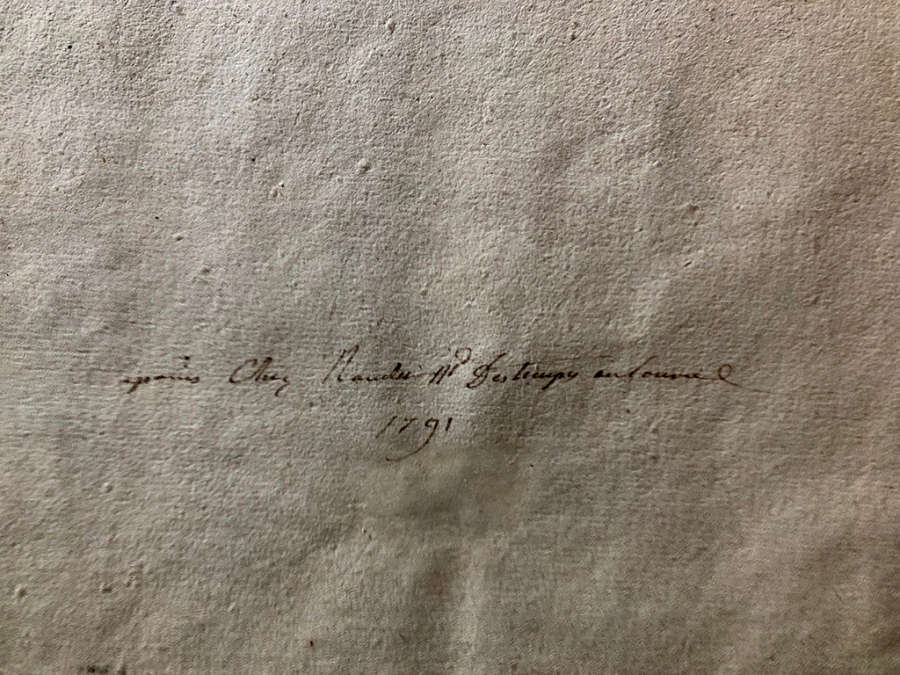 aparis Chez Naudet Md Destempe au Louvre
1791